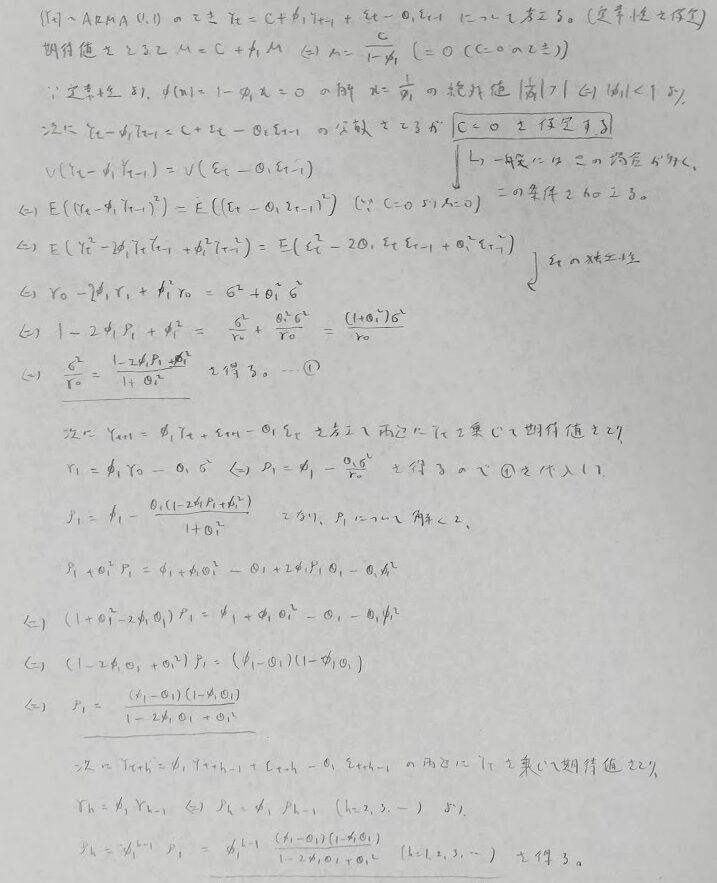 {Yt} ~ ARMA(1,1) のとき Yt = C + φ1Yt-1 + εt - θ1εt-1 について考える。(定常性を仮定)
期待値をとると μ = C + φ1μ ⇔ μ = C/(1-φ1) (= 0 (C=0のとき))
∵ 定常性より、φ(x) = 1 - φ1x = 0 の解 x = 1/φ1 の絶対値 |1/φ1| > 1 ⇔ |φ1| < 1 より、
次に Yt - φ1Yt-1 = C + εt - θ1εt-1 の分散をとるが C = 0 を仮定する
↳ 一般にはこの場合が多く、
この条件で考える。
V(Yt - φ1Yt-1) = V(εt - θ1εt-1)
⇔ E((Yt - φ1Yt-1)²) = E((εt - θ1εt-1)²) (∵ C=0 より μ=0)
⇔ E(Yt² - 2φ1YtYt-1 + φ1²Yt-1²) = E(εt² - 2θ1εtεt-1 + θ1²εt-1²)
εtの独立性
⇔ γ0 - 2φ1γ1 + φ1²γ0 = σ² + θ1²σ²
⇔ 1 - 2φ1ρ1 + φ1² = σ²/γ0 + θ1²σ²/γ0 = (1+θ1²)σ²/γ0
⇔ σ²/γ0 = (1 - 2φ1ρ1 + φ1²)/(1 + θ1²) を得る。…①
次に Yt+1 = φ1Yt + εt+1 - θ1εt を考えて両辺に Yt を乗じて期待値をとり、
γ1 = φ1γ0 - θ1σ² ⇔ ρ1 = φ1 - θ1σ²/γ0 を得るので①を代入して
ρ1 = φ1 - θ1(1 - 2φ1ρ1 + φ1²)/(1 + θ1²) となり、ρ1について解くと、
ρ1 + θ1²ρ1 = φ1 + φ1θ1² - θ1 + 2φ1ρ1θ1 - θ1φ1²
⇔ (1 + θ1² - 2φ1θ1)ρ1 = φ1 + φ1θ1² - θ1 - θ1φ1²
⇔ (1 - 2φ1θ1 + θ1²)ρ1 = (φ1 - θ1)(1 - φ1θ1)
⇔ ρ1 = (φ1 - θ1)(1 - φ1θ1)/(1 - 2φ1θ1 + θ1²)
次に Yt+h = φ1Yt+h-1 + εt+h - θ1εt+h-1 の両辺に Yt を乗じて期待値をとり、
γh = φ1γh-1 ⇔ ρh = φ1ρh-1 (h=2,3,…) より、
ρh = φ1^(h-1) ρ1 = φ1^(h-1) (φ1 - θ1)(1 - φ1θ1)/(1 - 2φ1θ1 + θ1²) (h=1,2,3,…) を得る。